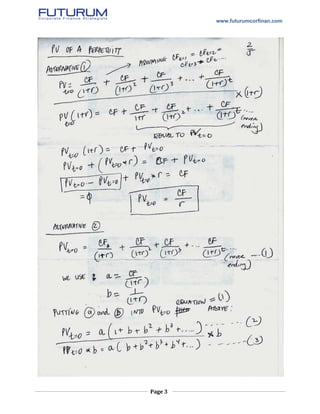 FUTURUM
Corporate Finance Strategists
www.futurumcorfinan.com
PV OF A PERPETUITY
2/5
ALTERNATIVE ①
ASSUMING CFt+1 = CFt+2 =
CFt+3 = CFt...
PVt=0 = CF/(1+r) + CF/(1+r)² + CF/(1+r)³ + ... + CF/(1+r)^t ...
× (1+r)
PV(1+r)t=0 = CF + CF/1+r + CF/(1+r)² + ... + CF/(1+r)^t ... (never ending)
EQUAL TO PVt=0
PVt=0 (1+r) = CF + PVt=0
PVt=0 + (PVt=0 * r) = CF + PVt=0
PVt=0 - PVt=0 + PVt=0 * r = CF
= 0
PVt=0 = CF/r
ALTERNATIVE ②
PVt=0 = CF/(1+r) + CF/(1+r)² + CF/(1+r)³ + ... CF/(1+r)^t ... (never ending) ---- (1)
WE USE : a = CF/(1+r)
b = 1/(1+r)
PUTTING ⓐ and ⓑ INTO PVt=0 EQUATION = (1) ABOVE :
PVt=0 = a (1 + b + b² + b³ + ....) ------ (2)
× b
PVt=0 * b = a (b + b² + b³ + b⁴ + ...) ------ (3)
Page 3